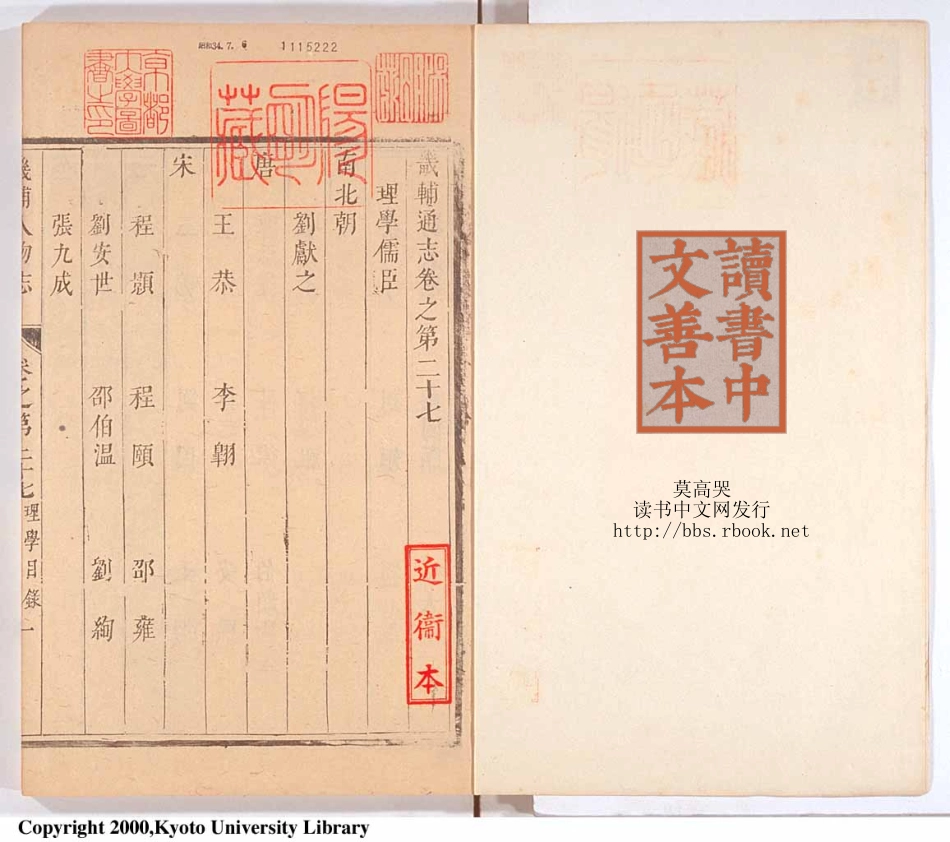 讀書中
文善本
莫高哭
读书中文网发行
http://bbs.rbook.net
34.7.6
1115222
陽明藏
京都
大學圖
書之印
畿輔通志卷之第二十七
理學儒臣
南北朝
劉獻之
唐
王恭 李翱
宋
程顥 程頤 邵雍
劉安世 邵伯温 劉絢
張九成
畿輔人物志 卷之第二十七 理學目錄一
近衞本
Copyright 2000,Kyoto University Library